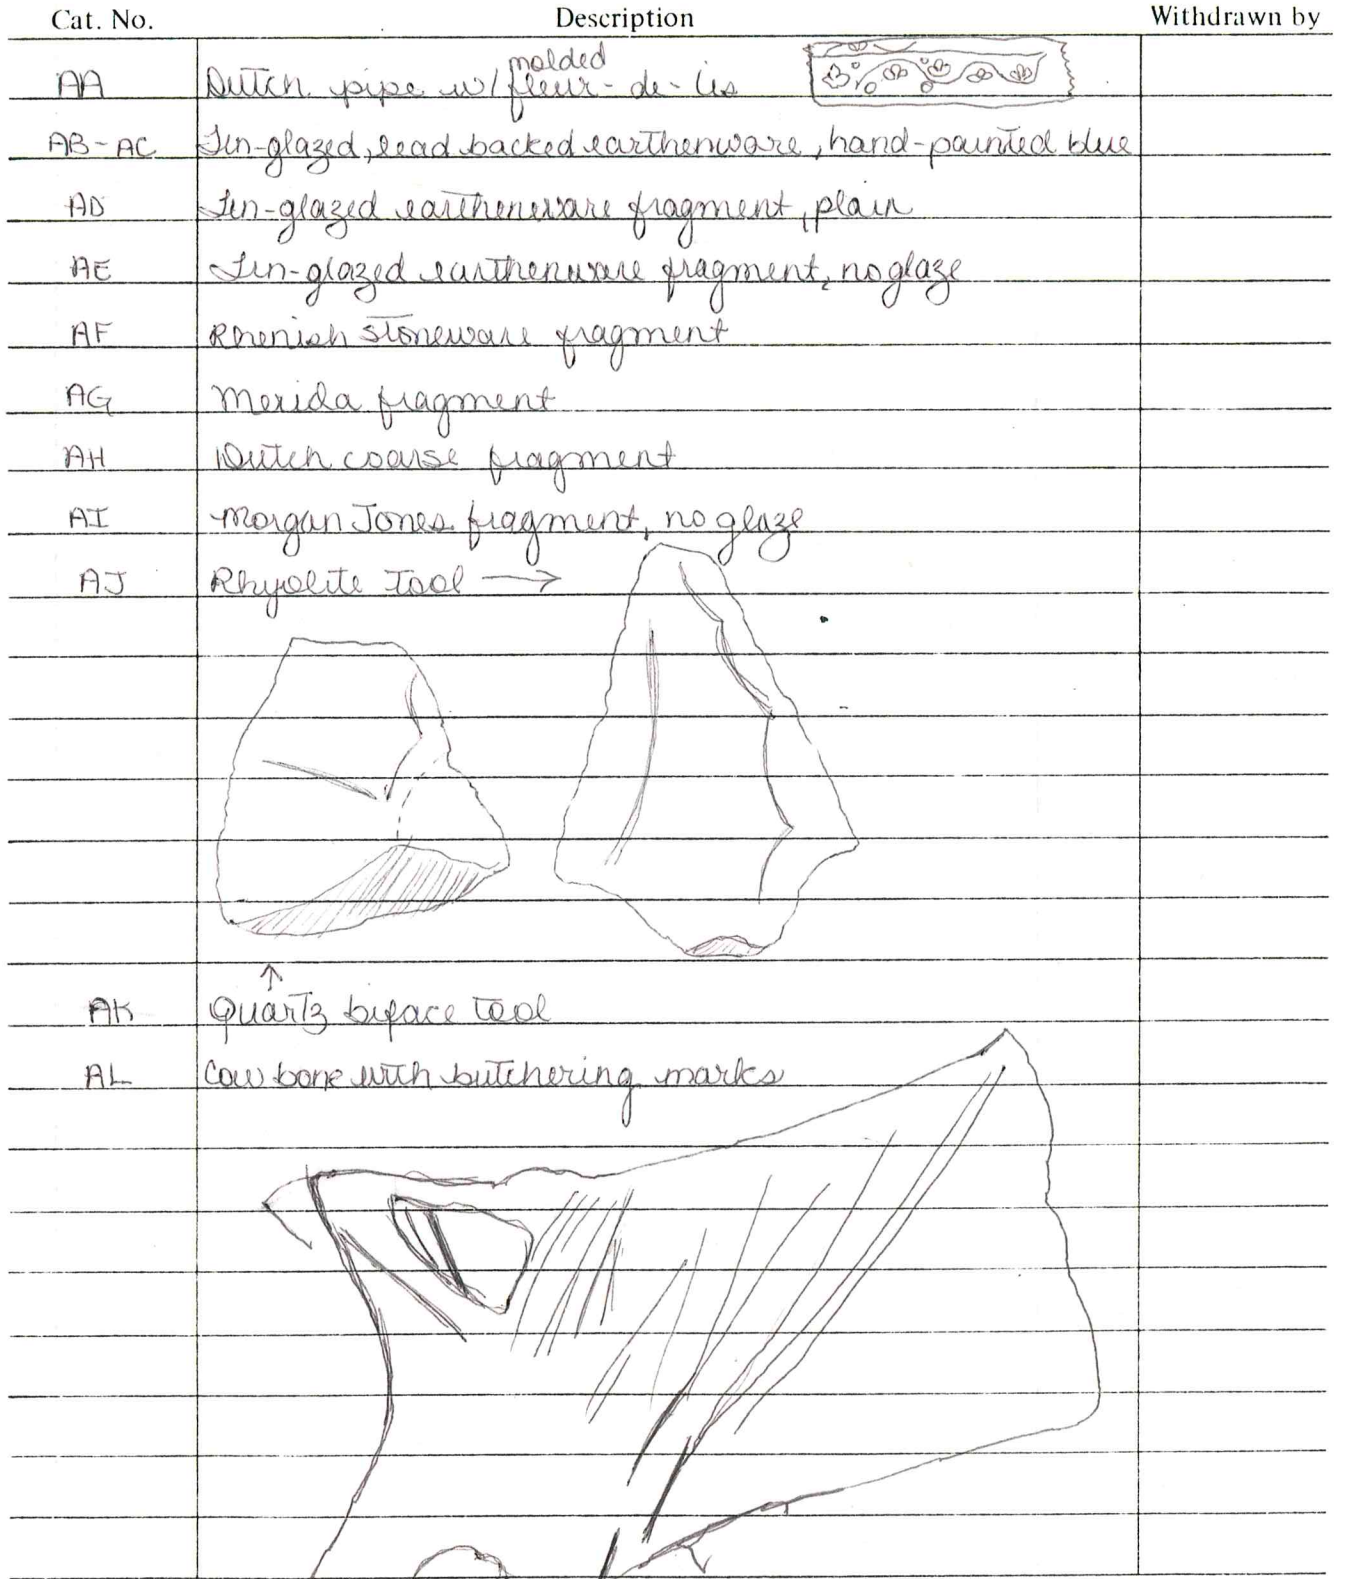 Cat. No. Description Withdrawn by
AA Dutch pipe w/ molded fleur-de-lis
AB-AC Tin-glazed, lead backed earthenware, hand-painted blue
AD Tin-glazed earthenware fragment, plain
AE Tin-glazed earthenware fragment, no glaze
AF Rhenish stoneware fragment
AG Merida fragment
AH Dutch coarse fragment
AI Morgan Jones fragment, no glaze
AJ Rhyolite Tool →
↑
AK Quartz biface tool
AL Cow bone with butchering marks